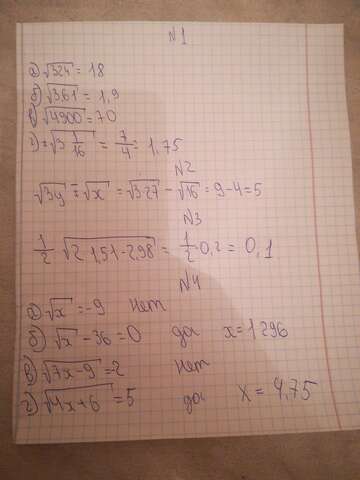 №1
а) √324 = 18
б) √361 = 1,9
в) √4900 = 70
г) = √3 1/16 = 7/4 = 1,75
№2
√3y - √x = √3·27 - √16 = 9-4=5
№3
1/2 √2·1,51-2,98 = 1/2·0,2 = 0,1
№4
а) √x = -9 нет
б) √x - 36 = 0 да x = 1296
в) √7x-9 = -2 нет
г) √4x+6 = 5 да x = 4,75